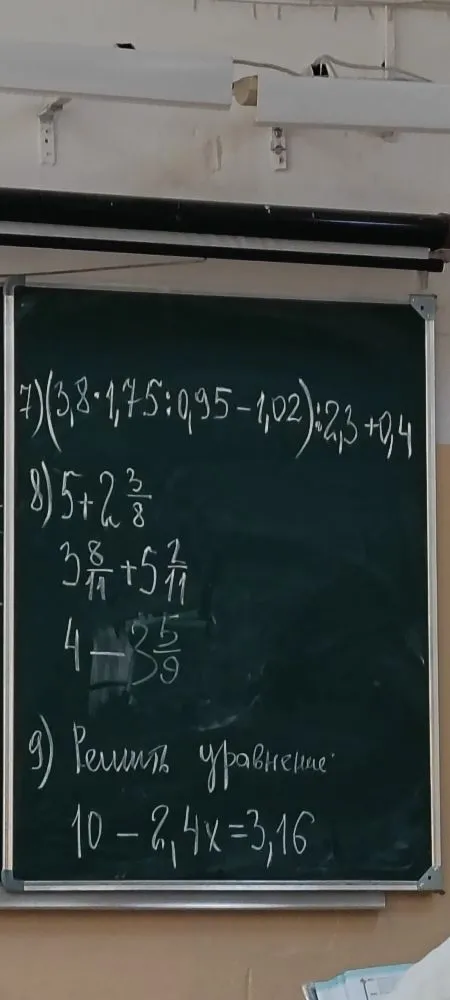 7) (3,8·1,75:0,95-1,02):2,3+0,4
8) 5+2 3/8
3 8/11 + 5 2/11
4 - 3 5/9
9) Решить уравнение:
10 - 2,4x = 3,16